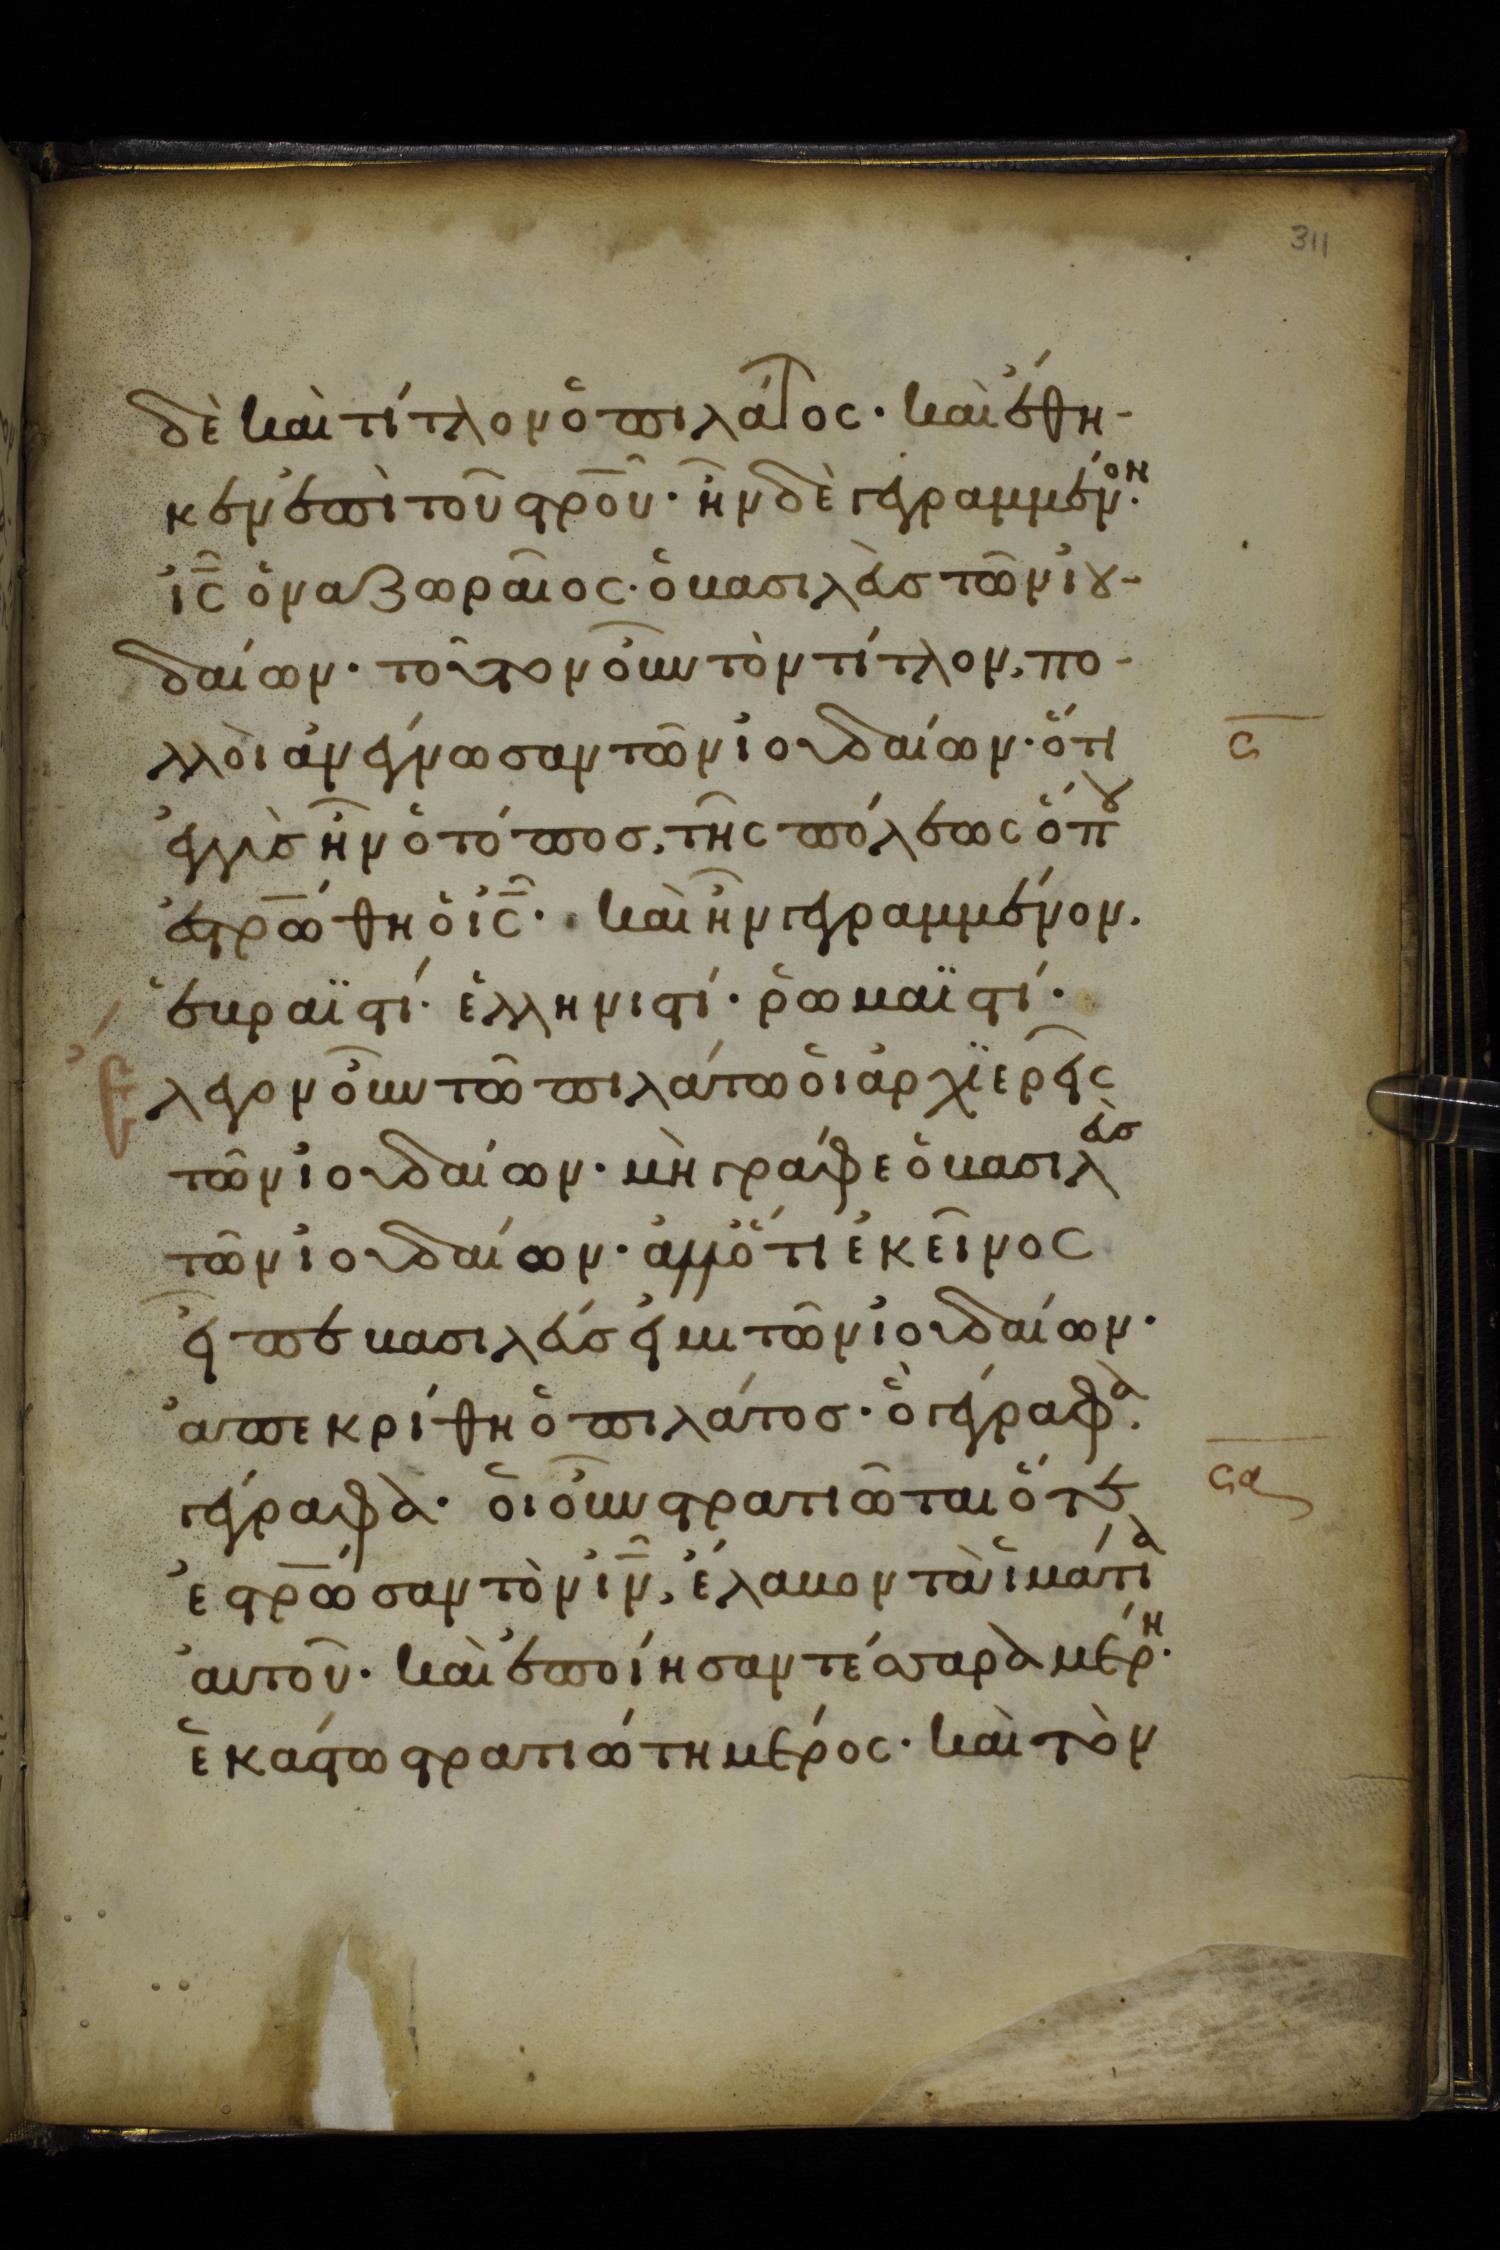 311
δὲ καὶ τίτλον ὁ πιλάτος· καὶ ἔθη-
κεν ἐπὶ τοῦ σ̅ρ̅ο̅υ̅· ἦν δὲ γεγραμμένον·
ι̅ς̅ ὁ ναζωραῖος· ὁ βασιλεὺς τῶν ἰου-
δαίων· τοῦτον οὖν τὸν τίτλον, πο-
λλοὶ ἀνέγνωσαν τῶν ἰουδαίων· ὅτι
ϛ
ἐγγὺς ἦν ὁ τόπος, τῆς πόλεως ὅπου
ἐσ̅ρ̅ώθη ὁ ι̅ς̅· καὶ ἦν γεγραμμένον.
ἑβραϊστί· ἑλληνιστί· ῥωμαϊστί·
ἔλεγον οὖν τῶ πιλάτω ὁι ἀρχϊερεῖς
τῶν ἰουδαίων· μὴ γράφε ὁ βασιλεὺς
τῶν ἰουδαίων· ἀλλ' ὅτι ἐκεῖνος
εἶπε βασιλεύς εἰμι τῶν ἰουδαίων·
ἀπεκρίθη ὁ πιλάτος· ὃ γέγραφα.
γέγραφα· ὁι οὖν στρατιῶται ὅτε
ϛα
ἐσ̅ρ̅ώσαν τὸν ι̅ν̅, ἔλαβον τὰ ἱμάτια
αὐτοῦ· καὶ ἐποίησαν τέσσαρα μέρη·
ἑκάστω στρατιώτη μέρος· καὶ τὸν